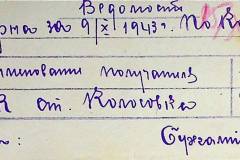 Ведомость
рна за 9/X 1943г. По К
именование получателя
К ст. Колосовка
:
Сужат